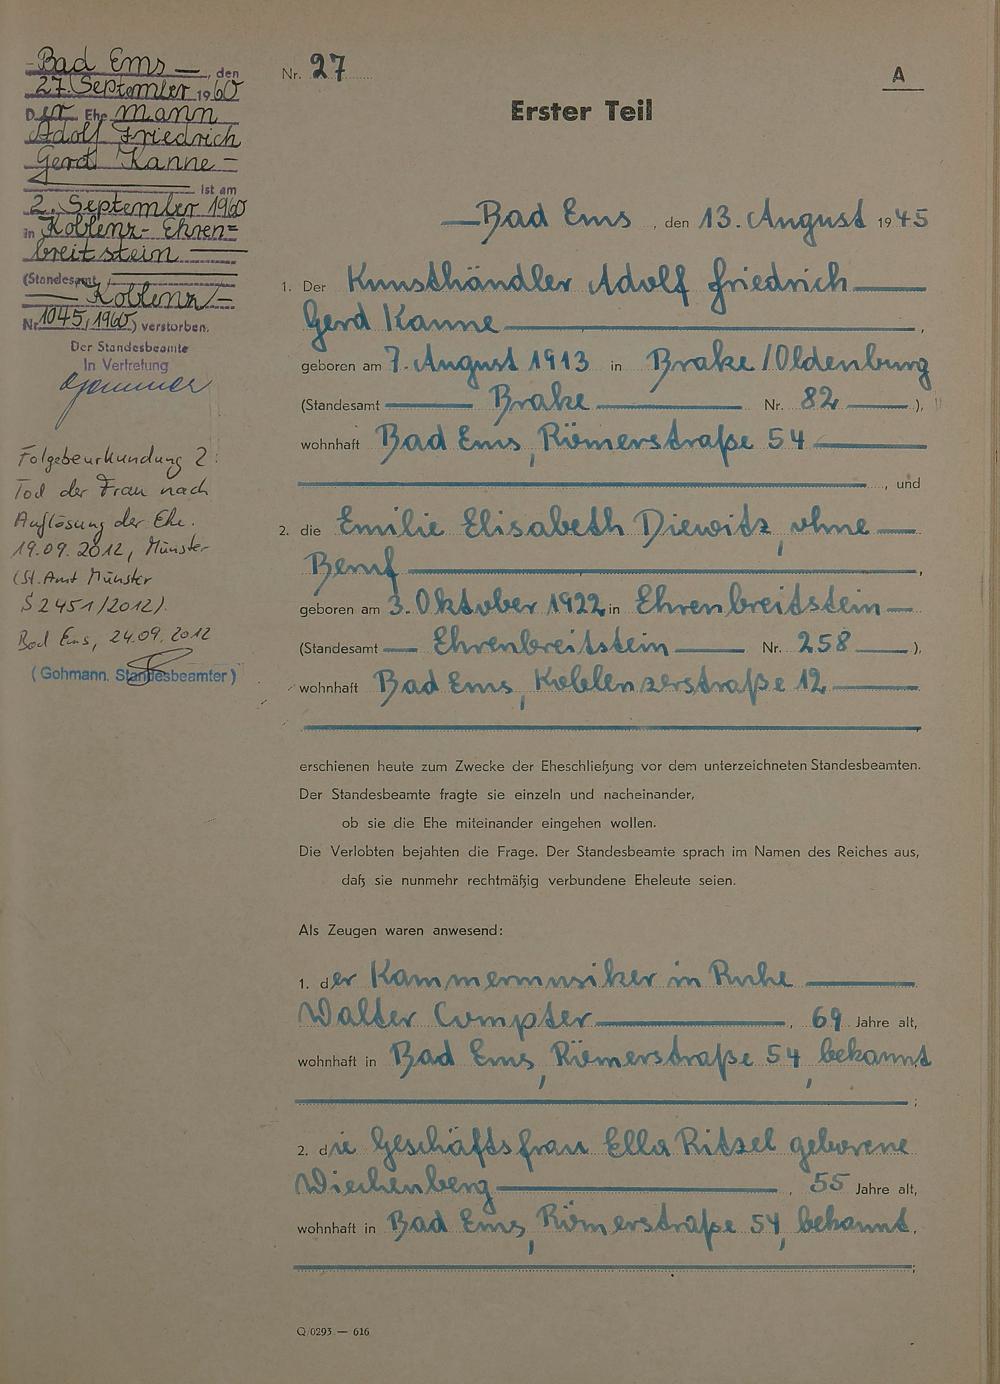 Nr. 27
A
Erster Teil
Bad Ems, den 13. August 1945
1. Der Kunsthändler Adolf Friedrich
Gerd Kanne,
geboren am 7. August 1913 in Brake/Oldenburg
(Standesamt Brake Nr. 82),
wohnhaft Bad Ems, Römerstraße 54
, und
2. die Emilie Elisabeth Diewitz, ohne
Beruf,
geboren am 3. Oktober 1922 in Ehrenbreitstein
(Standesamt Ehrenbreitstein Nr. 258),
wohnhaft Bad Ems, Koblenzerstraße 12
erschienen heute zum Zwecke der Eheschließung vor dem unterzeichneten Standesbeamten.
Der Standesbeamte fragte sie einzeln und nacheinander,
ob sie die Ehe miteinander eingehen wollen.
Die Verlobten bejahten die Frage. Der Standesbeamte sprach im Namen des Reiches aus,
daß sie nunmehr rechtmäßig verbundene Eheleute seien.
Als Zeugen waren anwesend:
1. der Kammermusiker in Ruhe
Walter Compter, 69 Jahre alt,
wohnhaft in Bad Ems, Römerstraße 54, bekannt
;
2. die Geschäftsfrau Ella Ritzel geborene
Wiechenberg, 55 Jahre alt,
wohnhaft in Bad Ems, Römerstraße 54, bekannt.
;
Q/0293 — 616
Bad Ems, den
27. September 1960
Der Ehemann
Adolf Friedrich
Gerd Kanne
ist am
2. September 1960
in Koblenz-Ehren=
breitstein
(Standesamt
Koblenz/-
Nr. 1045/1960) verstorben.
Der Standesbeamte
In Vertretung
Folgebeurkundung 2:
Tod der Frau nach
Auflösung der Ehe.
19.09.2012, Münster
(St.Amt Münster
S 2451/2012).
Bad Ems, 24.09.2012
(Gohmann, Standesbeamter)